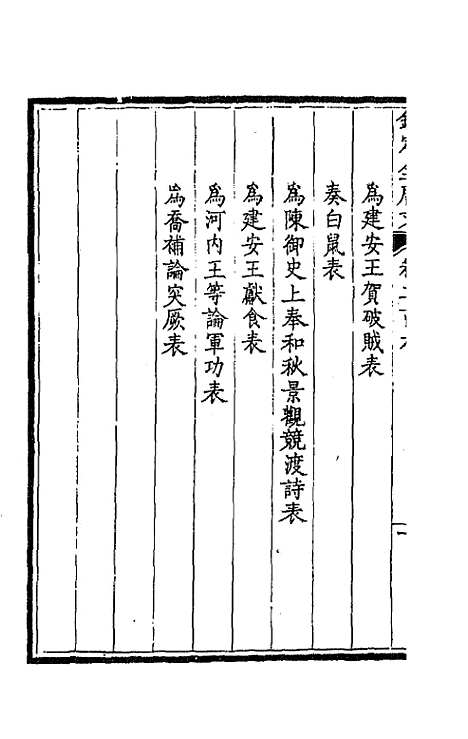 爲建安王賀破賊表
奏白鼠表
爲陳御史上奉和秋景觀競渡詩表
爲建安王獻食表
爲河內王等論軍功表
爲喬補論突厥表